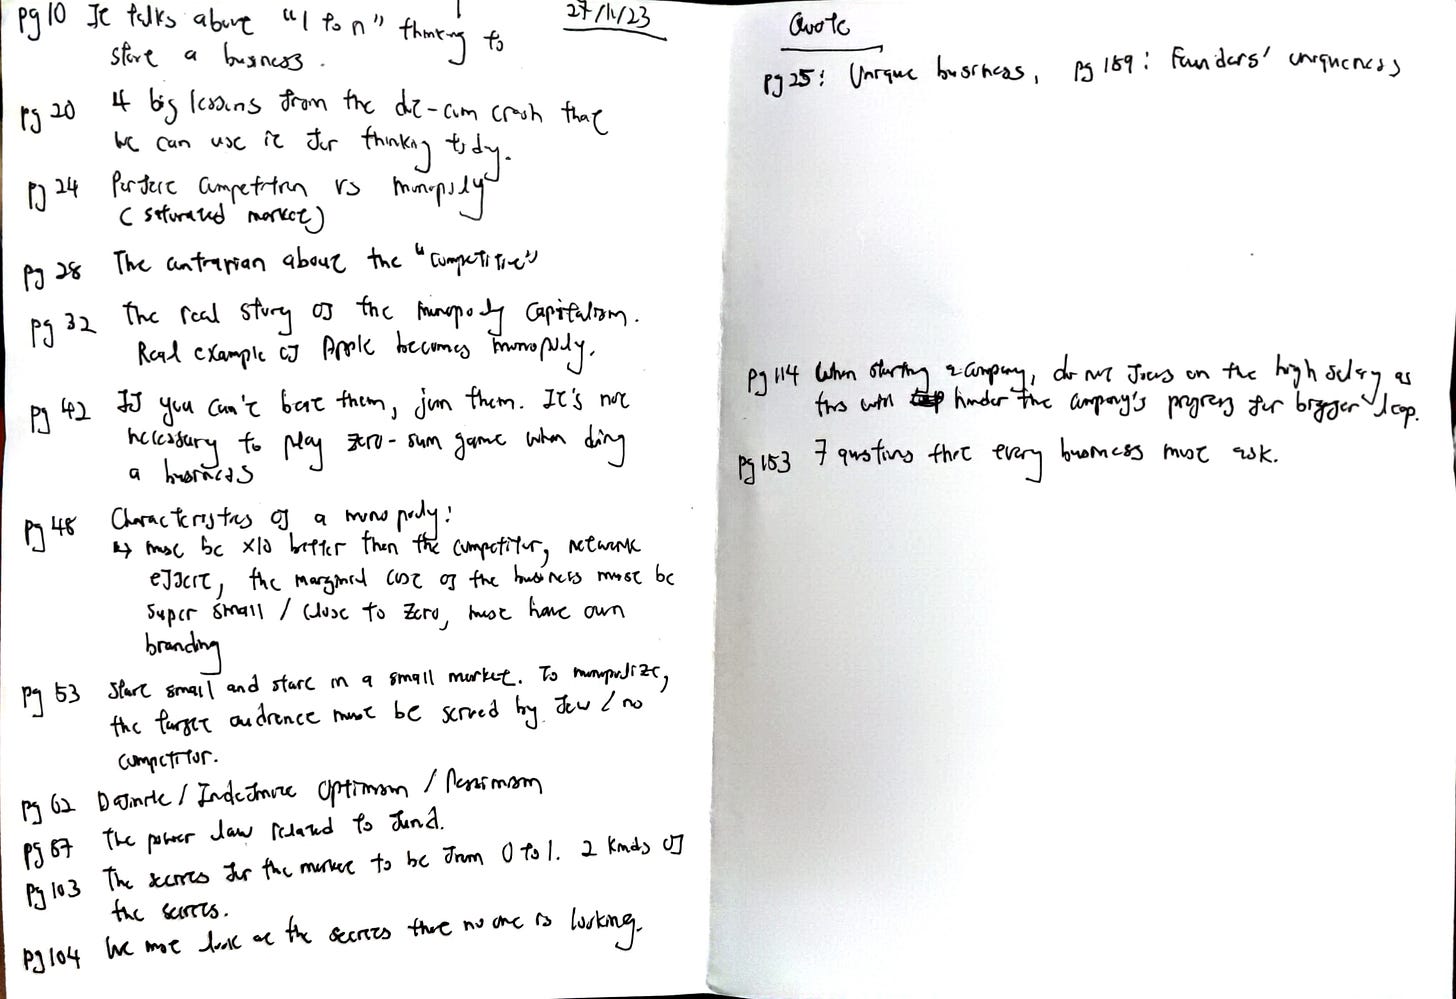 27/11/23
pg 10 It talks about "1 to n" thinking to
start a business.
pg 20 4 big lessons from the dot-com crash that
we can use it for thinking tody.
pg 24 Perfect competition vs monopoly
(saturated market)
pg 28 The contrarian about the "competitive"
pg 32 The real story of the monopoly capitalism.
Real example of Apple becomes monopoly.
pg 42 If you can't beat them, join them. It's not
necessary to play zero-sum game when doing
a business
pg 48 Characteristics of a monopoly:
↳ must be x10 better then the competitor, network
effect, the marginal cost of the business must be
super small / close to zero, must have own
branding
pg 53 Start small and start in a small market. To monopolize,
the target audience must be served by few / no
competitor.
pg 62 Definite / Indefinite Optimism / Pessimism
pg 87 The power law related to fund.
pg 103 The secrets for the market to be from 0 to 1. 2 kinds of
the secrets.
pg 104 We must look at the secrets that no one is looking.
Quote
pg 25: Unique business, pg 189: Founders' uniqueness
pg 114 When starting a company, do not focus on the high salary as
this will hinder the company's progress for bigger leap.
pg 153 7 questions that every business must ask.